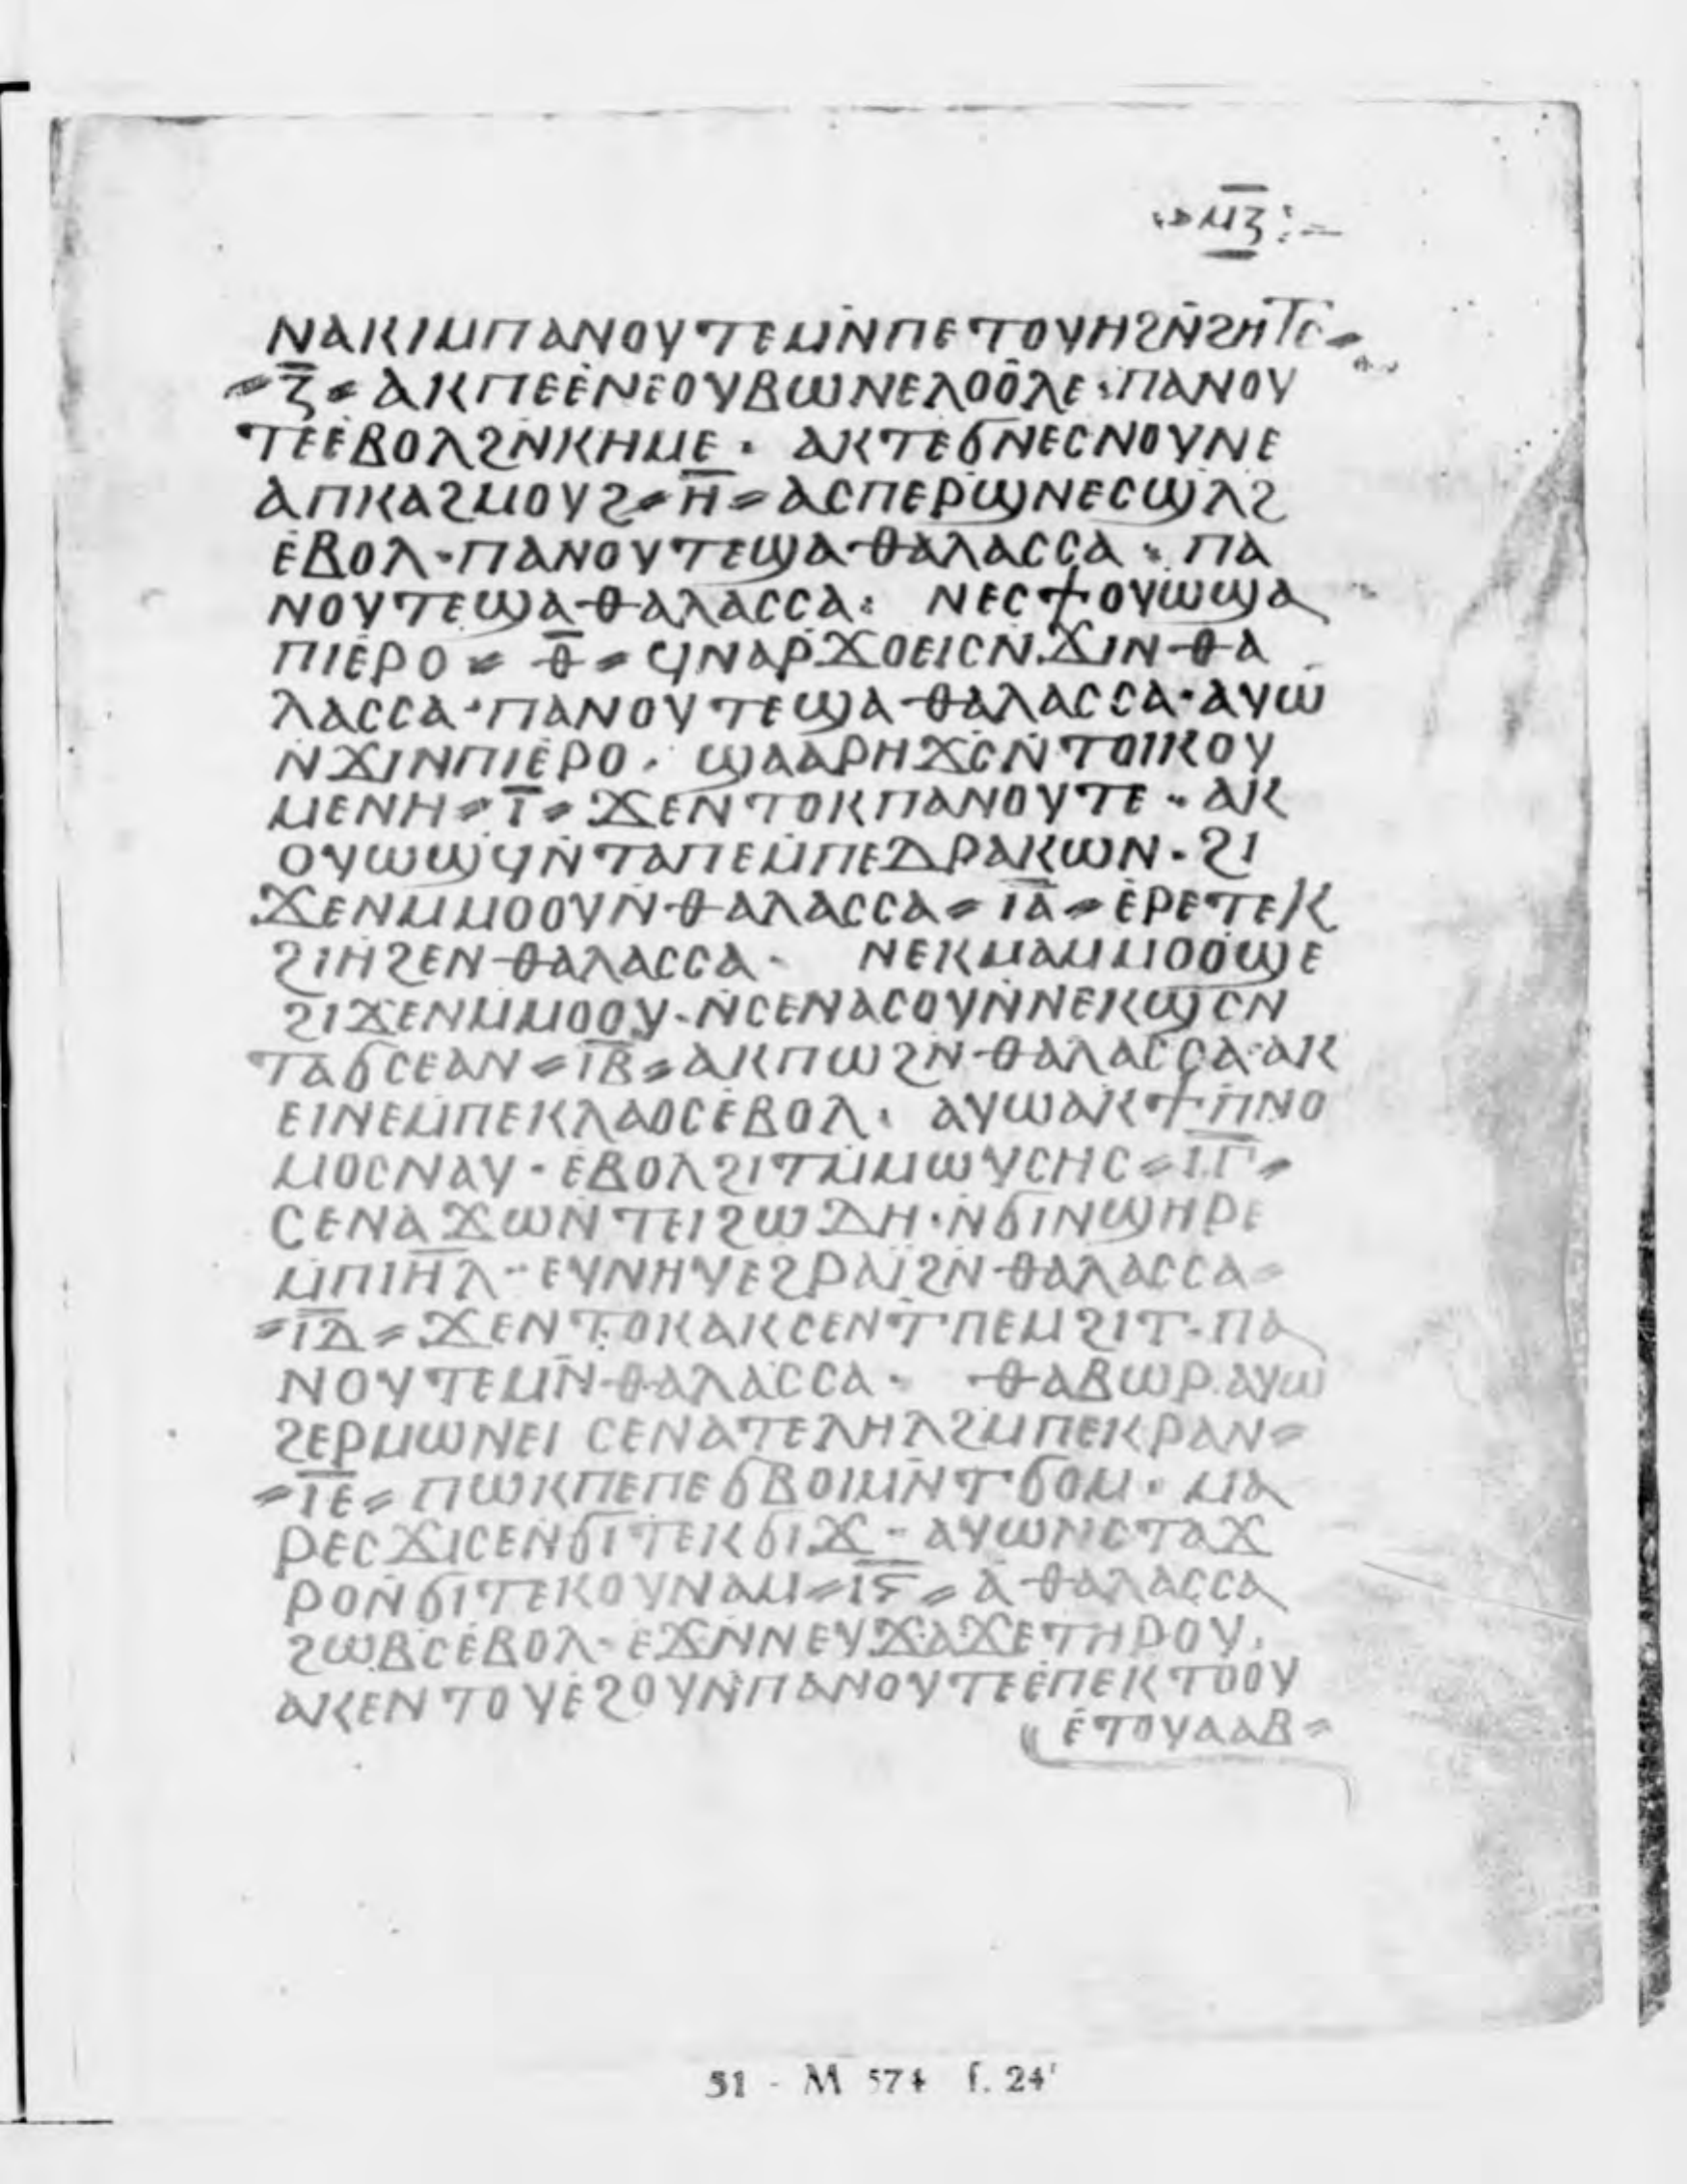 ·:> ⲙ̅ⲍ̅ :–
ⲛⲁⲕⲓⲙⲡⲁⲛⲟⲩⲧⲉⲙⲛ̄ⲡⲉⲧⲟⲩⲏϩⲛ̄ϩⲏⲧⲥ⸗
⸗ⲍ̅⸗ⲁⲕⲡⲉⲉ̇ⲛⲉⲟⲩⲃⲱⲛⲉⲗⲟⲟ̇ⲗⲉ·ⲡⲁⲛⲟⲩ
ⲧⲉⲉ̇ⲃⲟⲗϩⲛ̇ⲕⲏⲙⲉ· ⲁⲕⲧⲉϭⲛⲉⲥⲛⲟⲩⲛⲉ
ⲁⲡⲕⲁϩⲙⲟⲩϩ⸗ⲏ̅⸗ⲁⲥⲡⲉⲣ̇ϣⲛⲉⲥϣⲗϩ
ⲉ̇ⲃⲟⲗ·ⲡⲁⲛⲟⲩⲧⲉϣⲁⲑⲁⲗⲁⲥⲥⲁ· ⲡⲁ
ⲛⲟⲩⲧⲉϣⲁⲑⲁⲗⲁⲥⲥⲁ: ⲛⲉⲥϯⲟⲩⲱϣⲁ
ⲡⲓⲉ̇ⲣⲟ⸗ⲑ̅⸗ϥⲛⲁⲣ̇ϫⲟⲉⲓⲥⲛ̇ϫⲓⲛⲑⲁ
ⲗⲁⲥⲥⲁ·ⲡⲁⲛⲟⲩⲧⲉϣⲁⲑⲁⲗⲁⲥⲥⲁ·ⲁⲩⲱ
ⲛ̇ϫⲓⲛⲡⲓⲉ̇ⲣⲟ· ϣⲁⲁⲣⲏϫⲥⲛ̇ⲧⲟⲓⲕⲟⲩ
ⲙⲉⲛⲏ⸗ⲓ̅⸗ϫⲉⲛⲧⲟⲕⲡⲁⲛⲟⲩⲧⲉ·ⲁⲕ
ⲟⲩⲱϣϥⲛ̇ⲧⲁⲡⲉⲙ̇ⲡⲉⲇⲣⲁⲕⲱⲛ·ϩⲓ
ϫⲉⲛⲙⲙⲟⲟⲩⲛ̇ⲑⲁⲗⲁⲥⲥⲁ⸗ⲓ̅ⲁ̅⸗ⲉ̇ⲣⲉⲧⲉⲕ
ϩⲓⲏϩⲉⲛⲑⲁⲗⲁⲥⲥⲁ· ⲛⲉⲕⲙⲁⲙⲙⲟⲟ̇ϣⲉ
ϩⲓϫⲉⲛⲙⲙⲟⲟⲩ·ⲛ̇ⲥⲉⲛⲁⲥⲟⲩⲛ̇ⲛⲉⲕϣⲥⲛ
ⲧⲁϭⲥⲉⲁⲛ⸗ⲓ̅ⲃ̅⸗ⲁⲕⲡⲱϩⲛ̇ⲑⲁⲗⲁⲥⲥⲁ·ⲁⲕ
ⲉⲓⲛⲉⲙ̇ⲡⲉⲕⲗⲁⲟⲥⲉ̇ⲃⲟⲗ· ⲁⲩⲱⲁⲕϯⲡ̇ⲛⲟ
ⲙⲟⲥⲛⲁⲩ·ⲉ̇ⲃⲟⲗϩⲓⲧⲙ̇ⲙⲱⲩⲥⲏⲥ⸗ⲓ̅ⲅ̅⸗
ⲥⲉⲛⲁϫⲱⲛ̇ⲧⲉⲓϩⲱⲇⲏ·ⲛ̇ϭⲓⲛϣⲏⲣⲉ
ⲙ̇ⲡⲓⲏ̅ⲗ·ⲉⲩⲛⲏⲩⲉϩⲣⲁⲓ̈ϩⲛ̇ⲑⲁⲗⲁⲥⲥⲁ⸗
⸗ⲓ̅ⲇ̅⸗ϫⲉⲛⲧⲟⲕⲁⲕⲥⲉⲛⲧ̇ⲡⲉⲙϩⲓⲧ·ⲡⲁ
ⲛⲟⲩⲧⲉⲙⲛ̇ⲑⲁⲗⲁⲥⲥⲁ· ⲑⲁⲃⲱⲣ·ⲁⲩⲱ
ϩⲉⲣⲙⲱⲛⲉⲓ ⲥⲉⲛⲁⲧⲉⲗⲏⲗϩⲙ̇ⲡⲉⲕⲣⲁⲛ⸗
⸗ⲓ̅ⲉ̅⸗ⲡⲱⲕⲡⲉⲡⲉϭⲃⲟⲓⲙⲛ̇ⲧϭⲟⲙ·ⲙⲁ
ⲣⲉⲥϫⲓⲥⲉⲛ̇ϭⲓⲧⲉⲕϭⲓϫ·ⲁⲩⲱⲛ̇ⲥⲧⲁϫ
ⲣⲟⲛ̇ϭⲓⲧⲉⲕⲟⲩⲛⲁⲙ⸗ⲓ̅ⲋ̅⸗ⲁ̇ⲑⲁⲗⲁⲥⲥⲁ
ϩⲱⲃⲥⲉ̇ⲃⲟⲗ·ⲉϫⲛ̇ⲛⲉⲩϫⲁϫⲉⲧⲏⲣⲟⲩ·
ⲁⲕⲉⲛⲧⲟⲩⲉ̇ϩⲟⲩⲛ̇ⲡⲁⲛⲟⲩⲧⲉⲉ̇ⲡⲉⲕⲧⲟⲟⲩ
ⲉ̇ⲧⲟⲩⲁⲁⲃ⸗
51 - M 574 f. 24ʳ